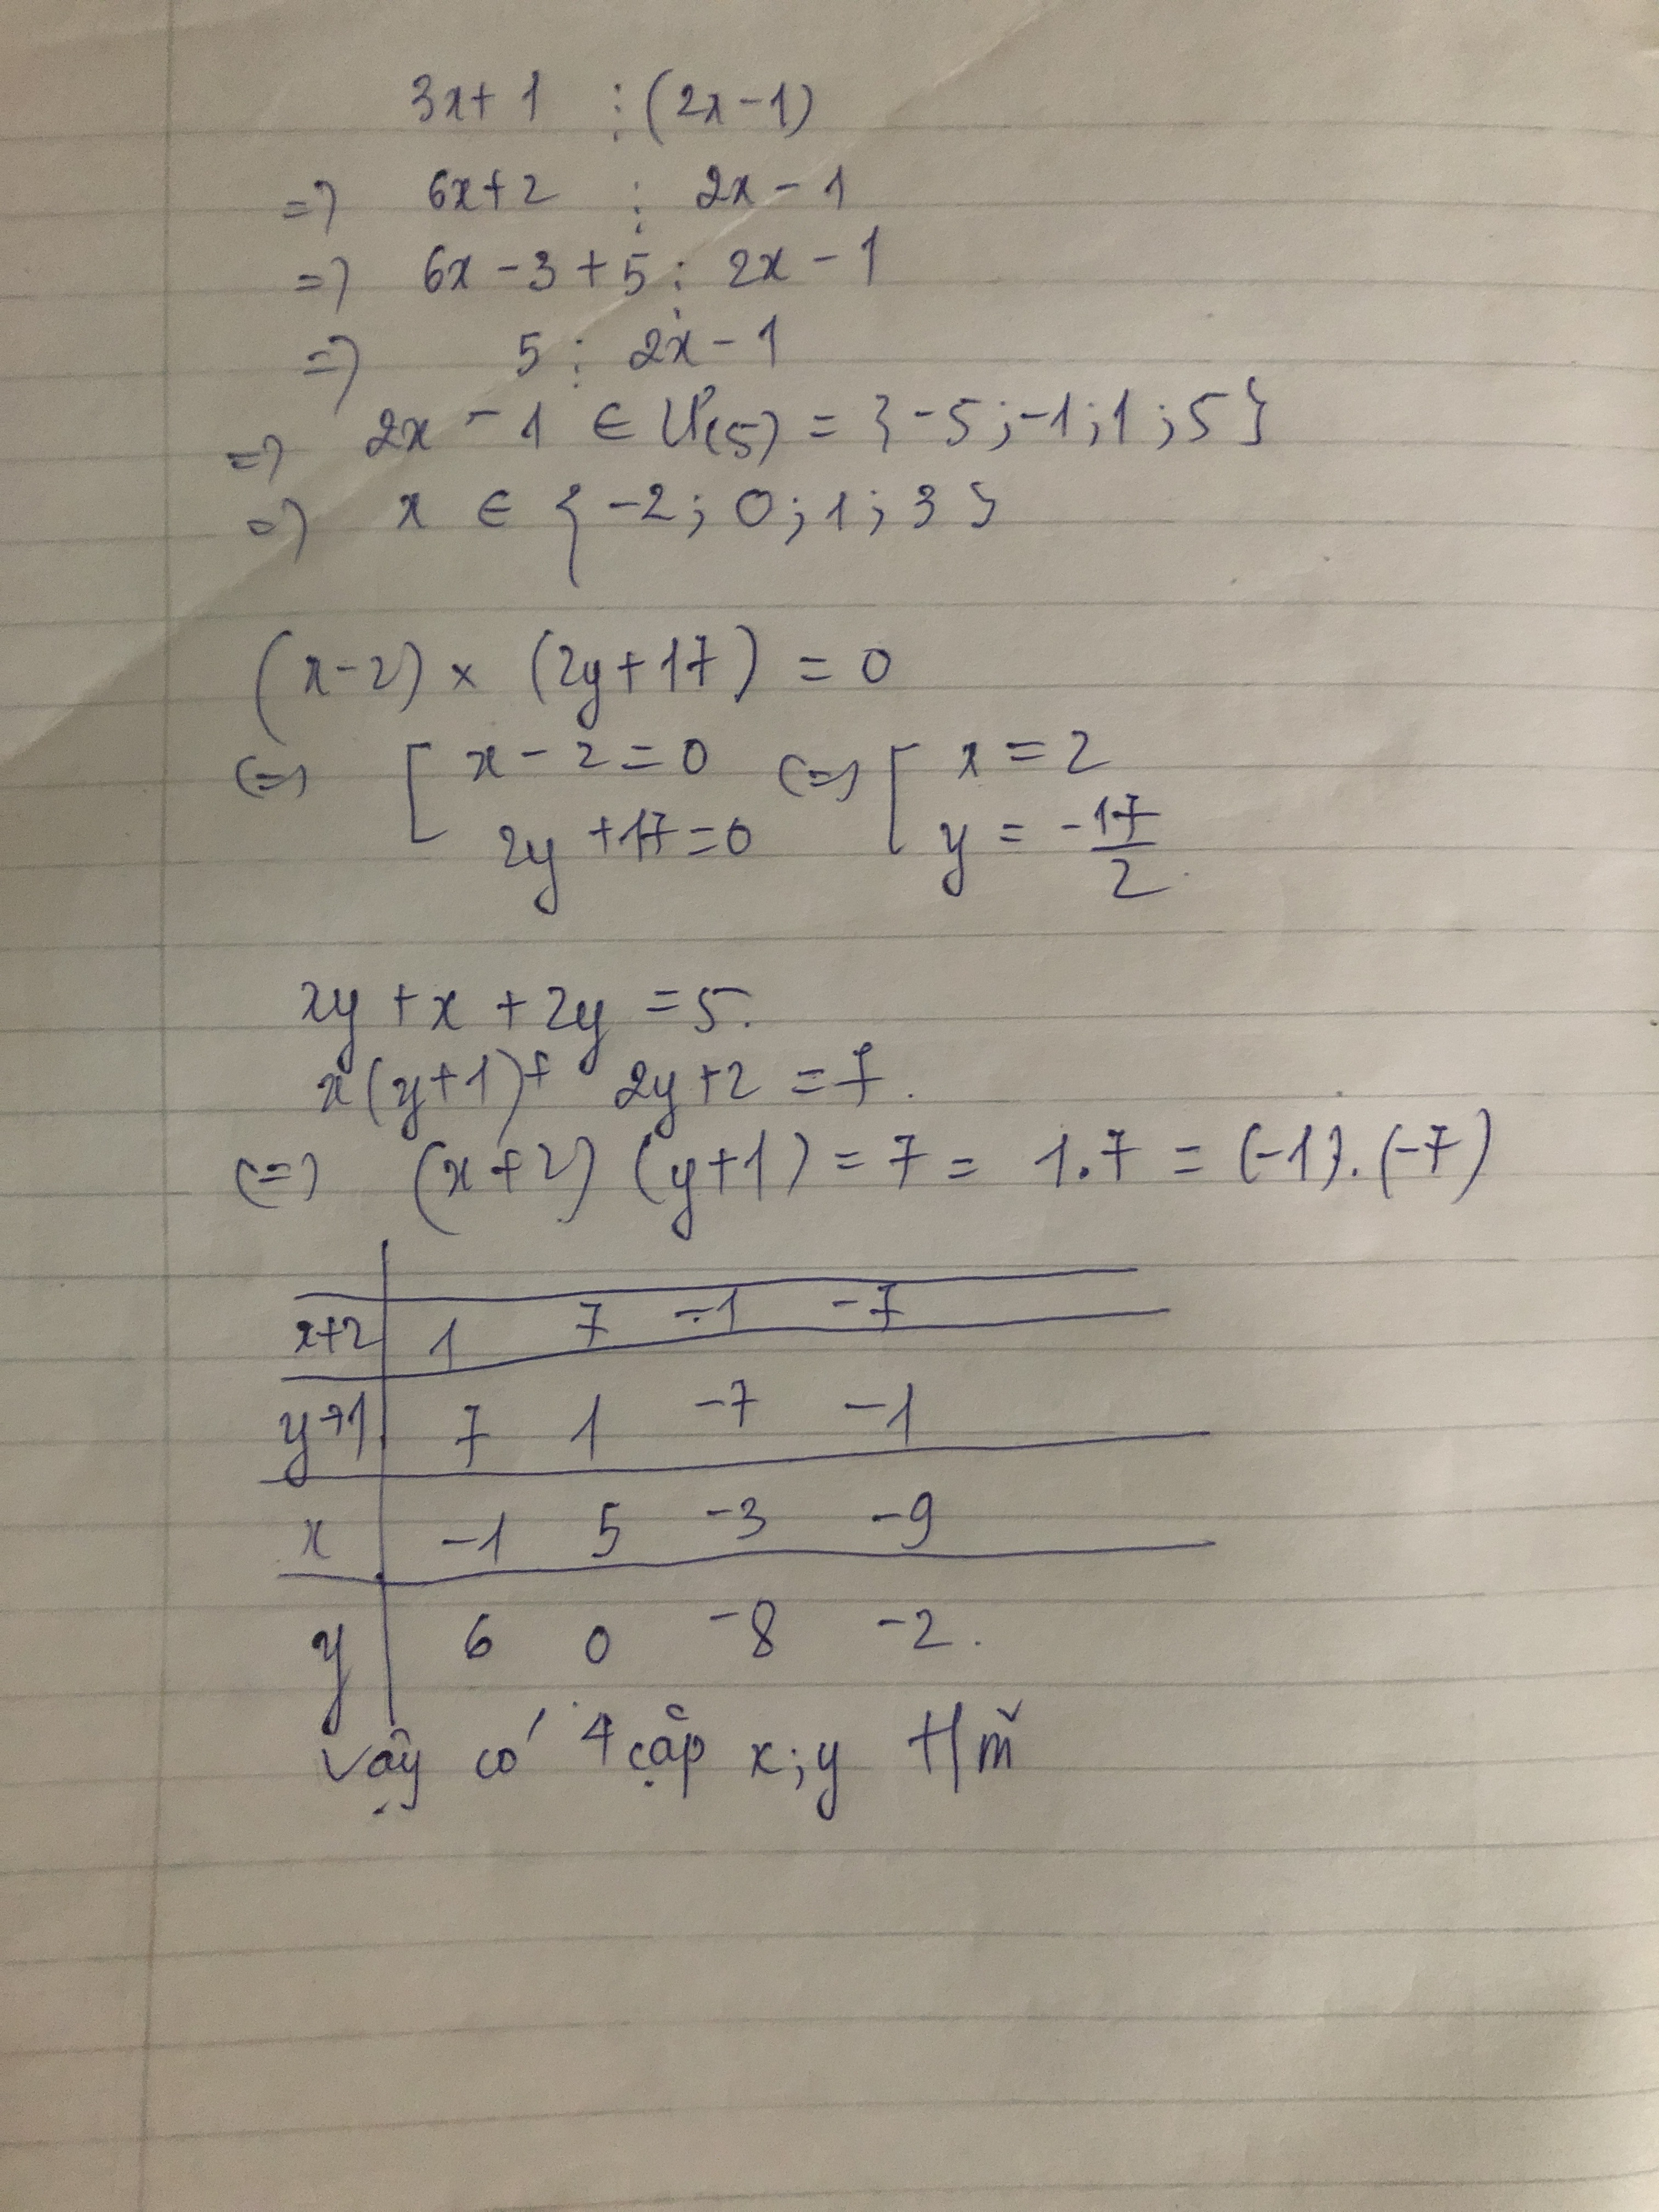 3x+1 ⋮ (2x-1)
=> 6x+2 ⋮ 2x-1
=> 6x-3+5 ⋮ 2x-1
=> 5 ⋮ 2x-1
=> 2x-1 ∈ Ư(5) = {-5;-1;1;5}
=> x ∈ {-2;0;1;3}
(x-2) × (2y+17) = 0
<=> [ x-2=0 <=> [ x=2
2y+17=0 y = -17/2
xy+x+2y=5.
x(y+1)+2y+2=7.
<=> (x+2)(y+1)=7=1.7=(-1).(-7)
x+2 | 1 7 -1 -7
y+1 | 7 1 -7 -1
x | -1 5 -3 -9
y | 6 0 -8 -2.
Vậy có 4 cặp x;y t/m